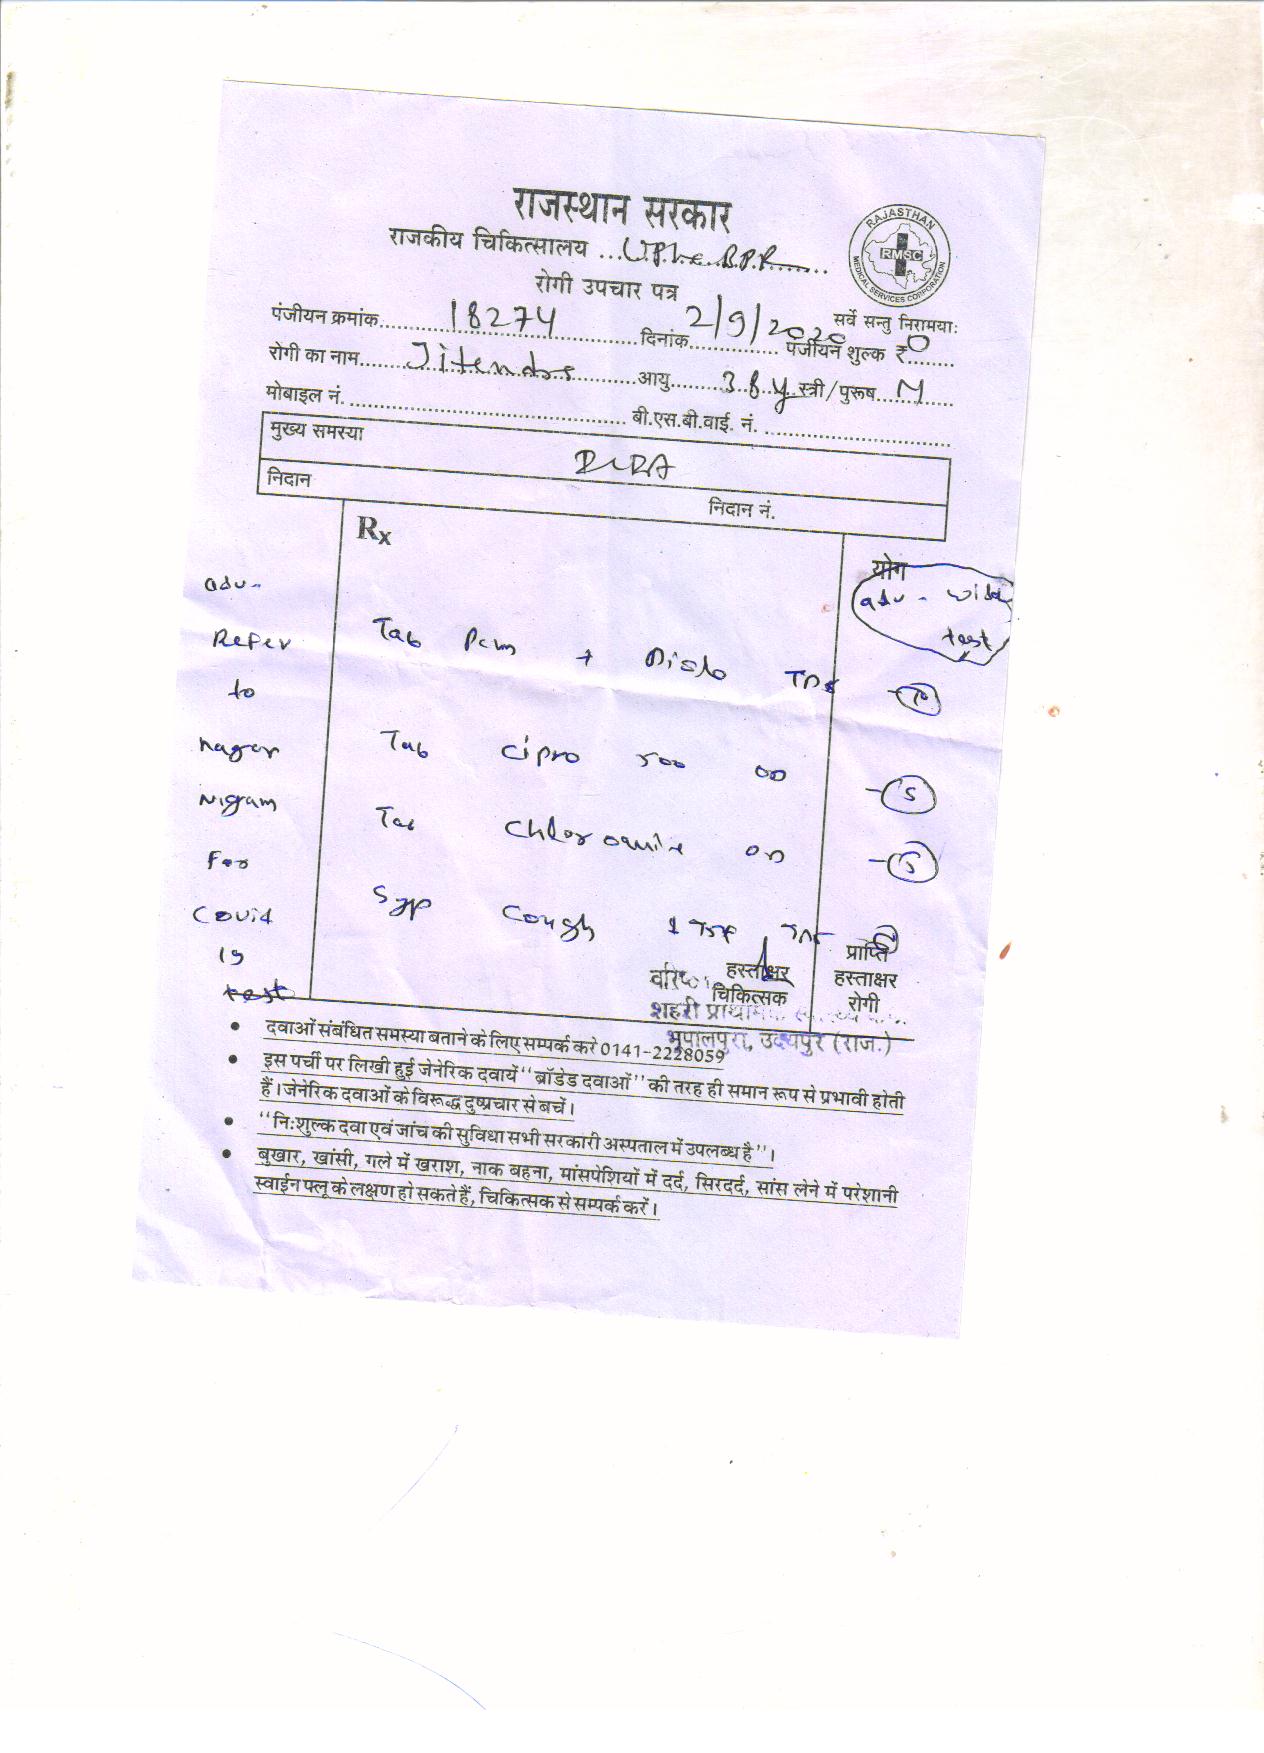 राजस्थान सरकार
राजकीय चिकित्सालय ... UPHC B.P.R
RAJASTHAN
RMSC
MEDICAL SERVICES CORPORATION
रोगी उपचार पत्र
सर्वे सन्तु निरामयाः
पंजीयन क्रमांक 18274 दिनांक 2/9/2020 पंजीयन शुल्क ₹ 0
रोगी का नाम आयु स्त्री/पुरूष M
मोबाइल नं. बी.एस.बी.वाई. नं.
मुख्य समस्या
निदान निदान नं.
Rx
योग
adv - widal
test
adv-
Refer
to
nagar
Nigam
For
Covid
19
test
Tab Pcm + TDS
Tab cipro 500 OD - 5
Tab OD - 5
Syp Cough 1 TSF
वरिष्ठ
हस्ताक्षर
चिकित्सक
प्राप्ति
हस्ताक्षर
रोगी
शहरी
भूपालपुरा, उदयपुर (राज.)
• दवाओं संबंधित समस्या बताने के लिए सम्पर्क करे 0141-2228059
• इस पर्ची पर लिखी हुई जेनेरिक दवायें "ब्रॉडेड दवाओं" की तरह ही समान रूप से प्रभावी होती
हैं। जेनेरिक दवाओं के विरूद्ध दुष्प्रचार से बचें।
• "निःशुल्क दवा एवं जांच की सुविधा सभी सरकारी अस्पताल में उपलब्ध है"।
• बुखार, खांसी, गले में खराश, नाक बहना, मांसपेशियों में दर्द, सिरदर्द, सांस लेने में परेशानी
स्वाईन फ्लू के लक्षण हो सकते हैं, चिकित्सक से सम्पर्क करें।